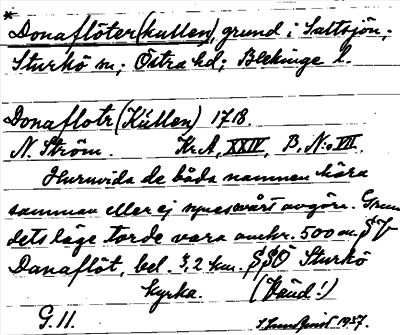 *
Donaflöter(kullen), grund i Saltsjön;
Sturkö sn; Östra hd; Blekinge l.
Donaflotr (Kullen) 1718.
N. Ström. Kr.A, XXIV, B, N:o VII.
Huruvida de båda namnen höra
samman eller ej synes svårt avgöra. Grun-
dets läge torde vara omkr. 500 m.
Danaflöt, bel. 3,2 km. Sturkö
kyrka. (Känd!)
G. 11. 1937.